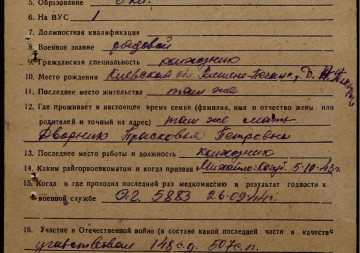 5. Образование 6 кл.
6. На ВУС 1
7. Должностная квалификация
8. Военное звание рядовой
9. Гражданская специальность колхозник
10. Место рождения Киевская обл.
11. Последнее место жительства там же
12. Где проживает в настоящее время семья (фамилия, имя и отчество жены или
родителей и точный их адрес) там же мать
Дворник Прасковья Петровна
13. Последнее место работы и должность колхозник
14. Каким райгорвоенкоматом и когда призван 5.10.43г.
15. Когда и где проходил последний раз медкомиссию и результат годности к
военной службе Э.Г. 5883 26.09.44г.
16. Участие в Отечественной войне (в составе какой последней части и качестве
участвовал 148 с.д. 507 с.п.